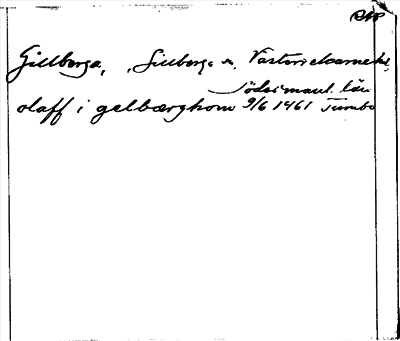 Gillberga, Gillberga sn, Västerrekarne hd,
Södermanl. län
olaff i gelbærghom 9/6 1461 Tumbo